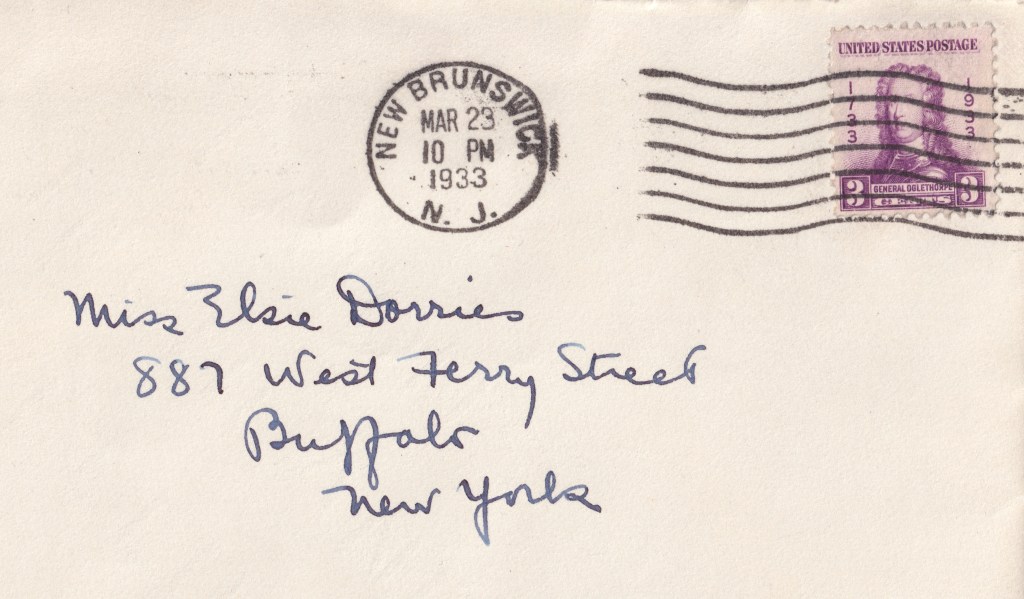 NEW BRUNSWICK
MAR 23
10 PM
1933
N. J.
UNITED STATES POSTAGE
1733
1933
3
GENERAL OGLETHORPE
3
Miss Elsie Dorries
887 West Ferry Street
Buffalo
New York